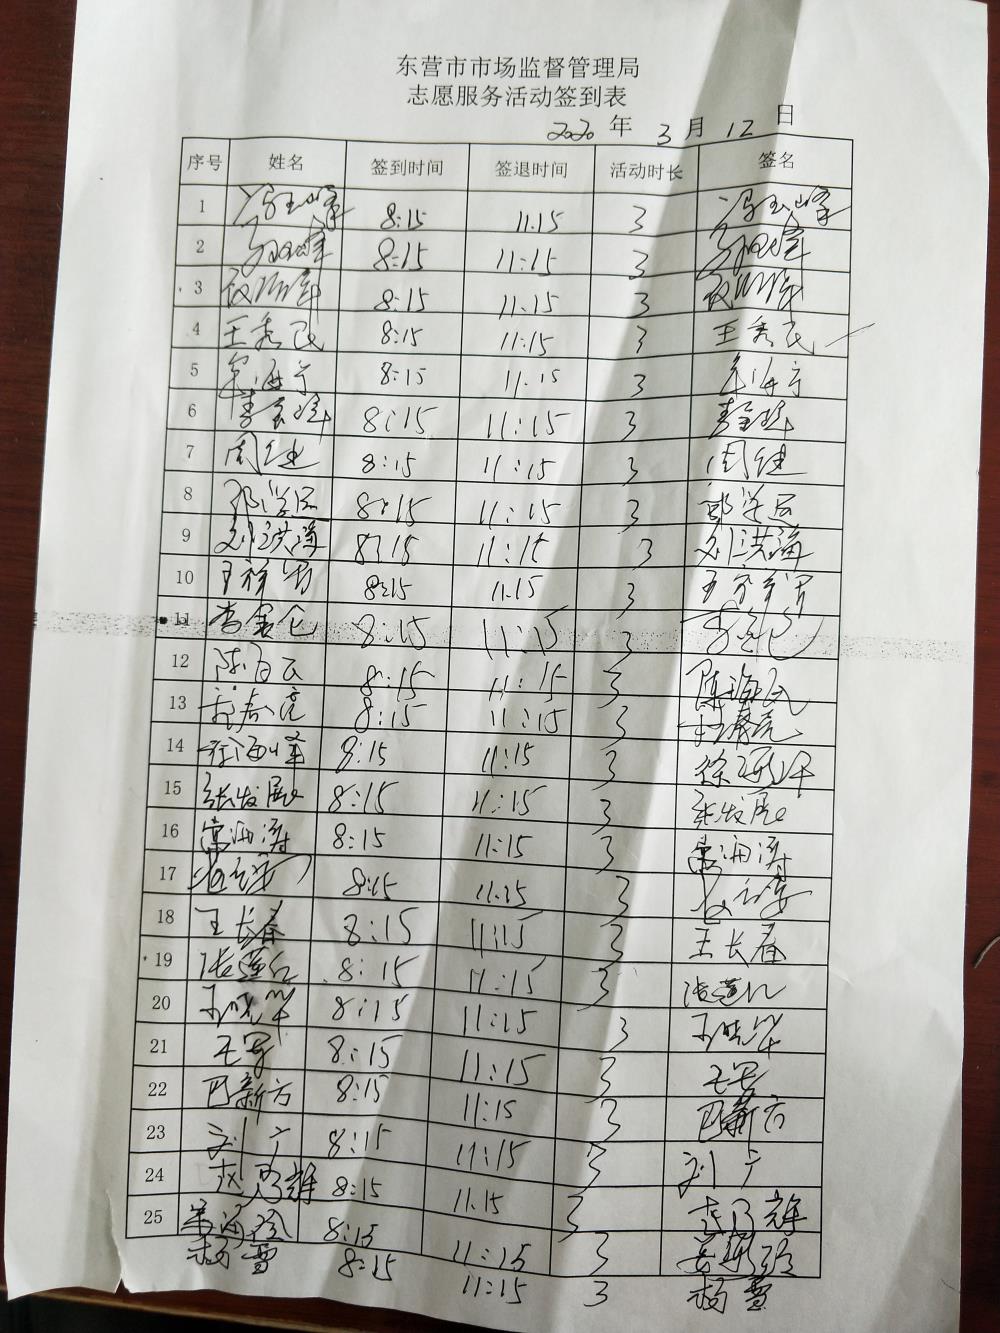 东营市市场监督管理局
志愿服务活动签到表
2020 年 3 月 12 日
序号 姓名 签到时间 签退时间 活动时长 签名
1 冯玉峰 8:15 11.15 3 冯玉峰
2 8:15 11:15 3
3 8:15 11.15 3
4 王秀民 8:15 11:15 3 王秀民
5 海宁 8:15 11.15 3 海宁
6 8:15 11:15 3
7 周健 8:15 11:15 3 周健
8 8:15 11:15 3
9 刘洪海 8:15 11:15 3 刘洪海
10 8:15 11.15 3
11 8:15 11:15 3
12 陈 8:15 11:15 3 陈海民
13 春亮 8:15 11:15 3 春亮
14 8:15 11:15 3
15 张发展 8:15 11:15 3 张发展
16 常海涛 8:15 11:15 3 常海涛
17 8:15 11.15 3
18 王长春 8:15 11:15 3 王长春
19 张莲红 8:15 11:15 3 张莲红
20 晓华 8:15 11:15 3 晓华
21 王军 8:15 11:15 3 王军
22 巴新方 8:15 11:15 3 巴新方
23 刘广 8:15 11:15 3 刘广
24 赵乃雄 8:15 11.15 3
25 8:15 11:15 3
杨雪 8:15 11:15 3 杨雪